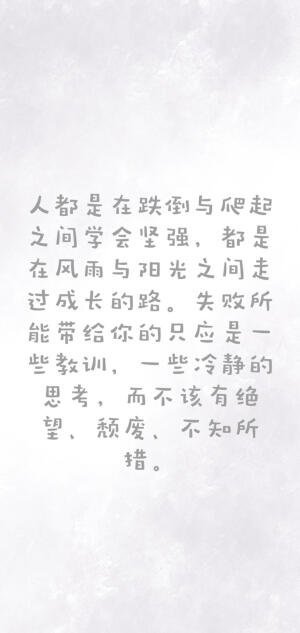 人都是在跌倒与爬起
之间学会坚强，都是
在风雨与阳光之间走
过成长的路。失败所
能带给你的只应是一
些教训，一些冷静的
思考，而不该有绝
望、颓废、不知所
措。